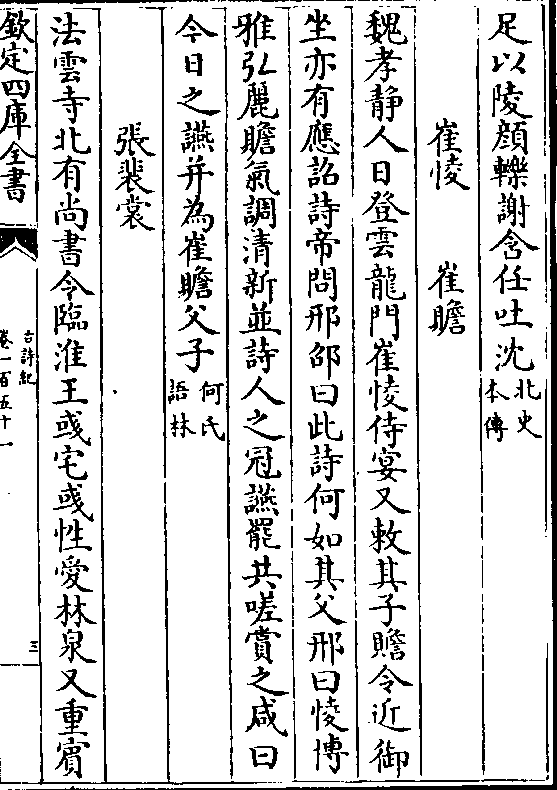 足以陵顔轢謝含任吐沈北史本傳
崔㥄　崔贍
魏孝静人日登雲龍門崔㥄侍宴又敕其子贍令近御
坐亦有應詔詩帝問邢邵曰此詩何如其父邢曰㥄博
雅弘麗贍氣調清新並詩人之冠讌罷共嗟賞之咸曰
今日之讌并為崔贍父子何氏語林
張裴裳
法雲寺北有尚書令臨淮王彧宅彧性愛林泉又重賓
欽定四庫全書
古詩紀
卷一百五十一
三